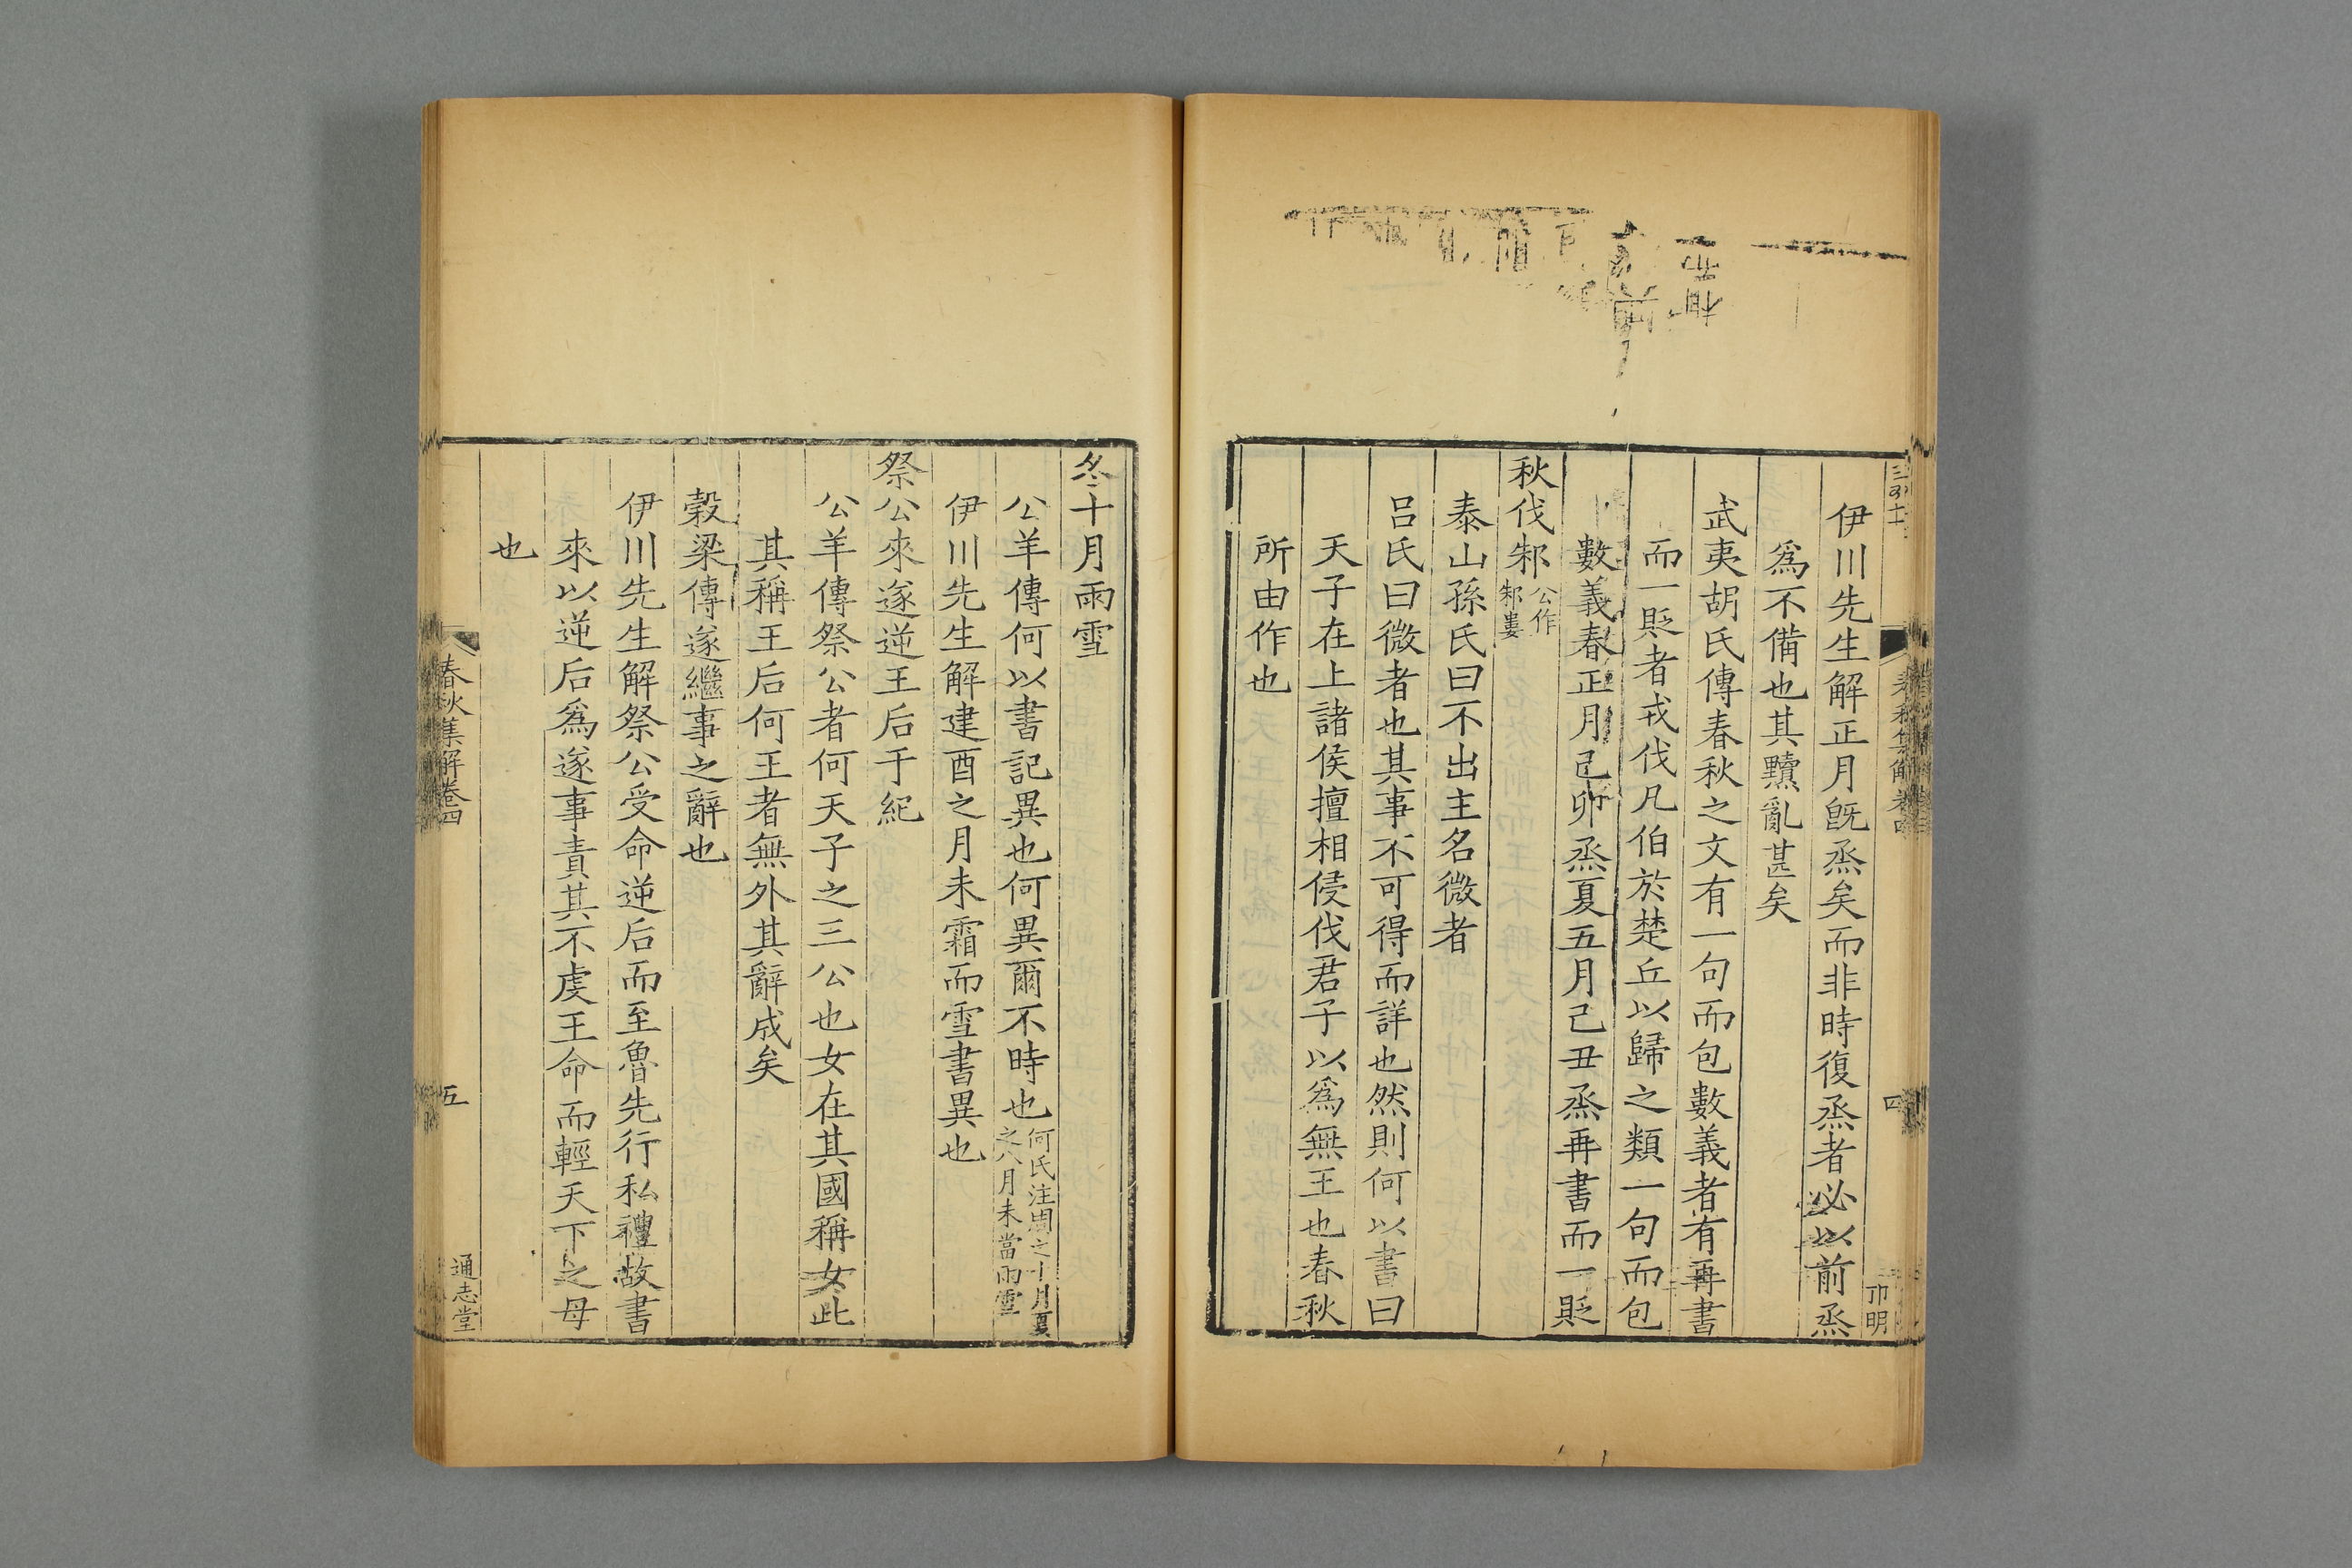 伊川先生解正月旣烝矣而非時復烝者必以前烝
爲不備也其黷亂甚矣
武夷胡氏傳春秋之文有一句而包數義者有再書
而一貶者戎伐凡伯於楚丘以歸之類一句而包
數義春正月己卯烝夏五月己丑烝再書而一貶
秋伐邾公作邾婁
泰山孫氏曰不出主名微者
呂氏曰微者也其事不可得而詳也然則何以書曰
天子在上諸侯擅相侵伐君子以爲無王也春秋
所由作也
冬十月雨雪
公羊傳何以書記異也何異爾不時也何氏注周之十月夏之八月未當雨雪
伊川先生解建酉之月未霜而雪書異也
祭公來遂逆王后于紀
公羊傳祭公者何天子之三公也女在其國稱女此
其稱王后何王者無外其辭成矣
穀梁傳遂繼事之辭也
伊川先生解祭公受命逆后而至魯先行私禮故書
來以逆后爲遂事責其不虔王命而輕天下之母
也
春秋集解卷四
五
通志堂